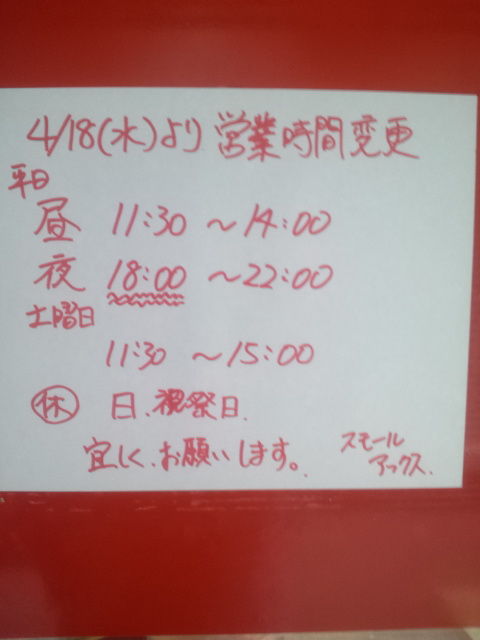 4/18(水)より 営業時間変更
平日
昼 11:30 〜14:00
夜 18:00 〜22:00
土曜日
11:30 〜15:00
休 日、祝祭日、
宜しく、お願いします。
スモール
アックス.